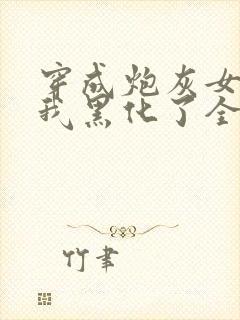 穿成炮灰女
我黑化了全
竹聿